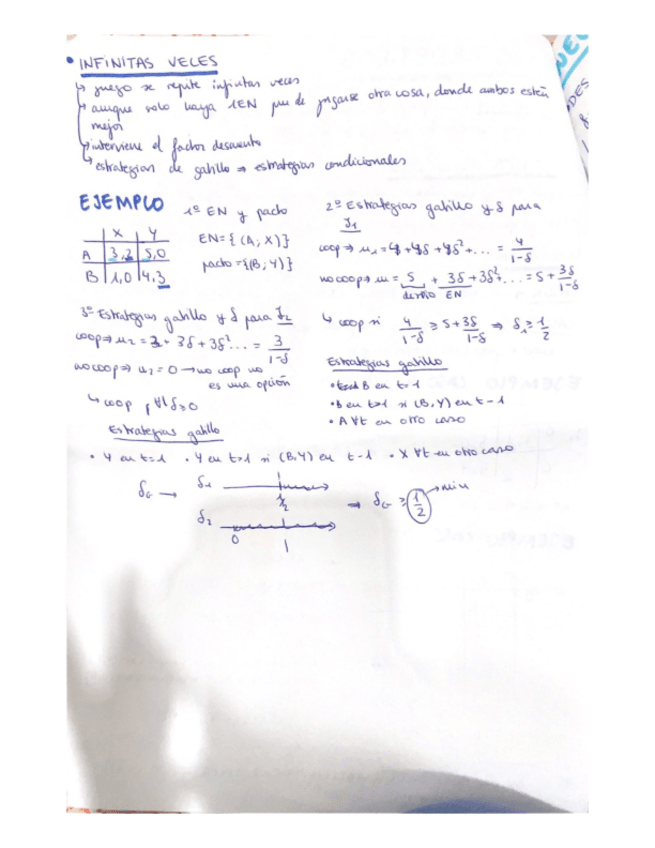 • INFINITAS VECES
↳ juego se repite infinitas veces
↳ aunque solo haya 1EN puede jugarse otra cosa, donde ambos estén
mejor
↳ interviene el factor descuento
↳ estrategias de gatillo ⇒ estrategias condicionales
EJEMPLO
1º EN y pacto
X Y
A 3,2 5,0
B 1,0 4,3
EN={(A,X)}
pacto={(B,Y)}
2º Estrategias gatillo y δ para
J1
coop ⇒ u1 = 4 + 4δ + 4δ² + ... = 4/1-δ
no coop ⇒ u = 5 + 3δ + 3δ² + ... = 5 + 3δ/1-δ
desvío EN
↳ coop si 4/1-δ ≥ 5 + 3δ/1-δ ⇒ δ1 ≥ 1/2
Estrategias gatillo
• B en t=1
• B en t>1 si (B,Y) en t-1
• A ∀t en otro caso
3º Estrategias gatillo y δ para J2
coop ⇒ u2 = 3 + 3δ + 3δ² ... = 3/1-δ
no coop ⇒ u2 = 0 → no coop no
es una opción
↳ coop, ∀δ ≥ 0
Estrategias gatillo
• Y en t=1 • Y en t>1 si (B,Y) en t-1 • X ∀t en otro caso
δG → δ1
1/2
δ2
0 1
→ δG ≥ 1/2 → min